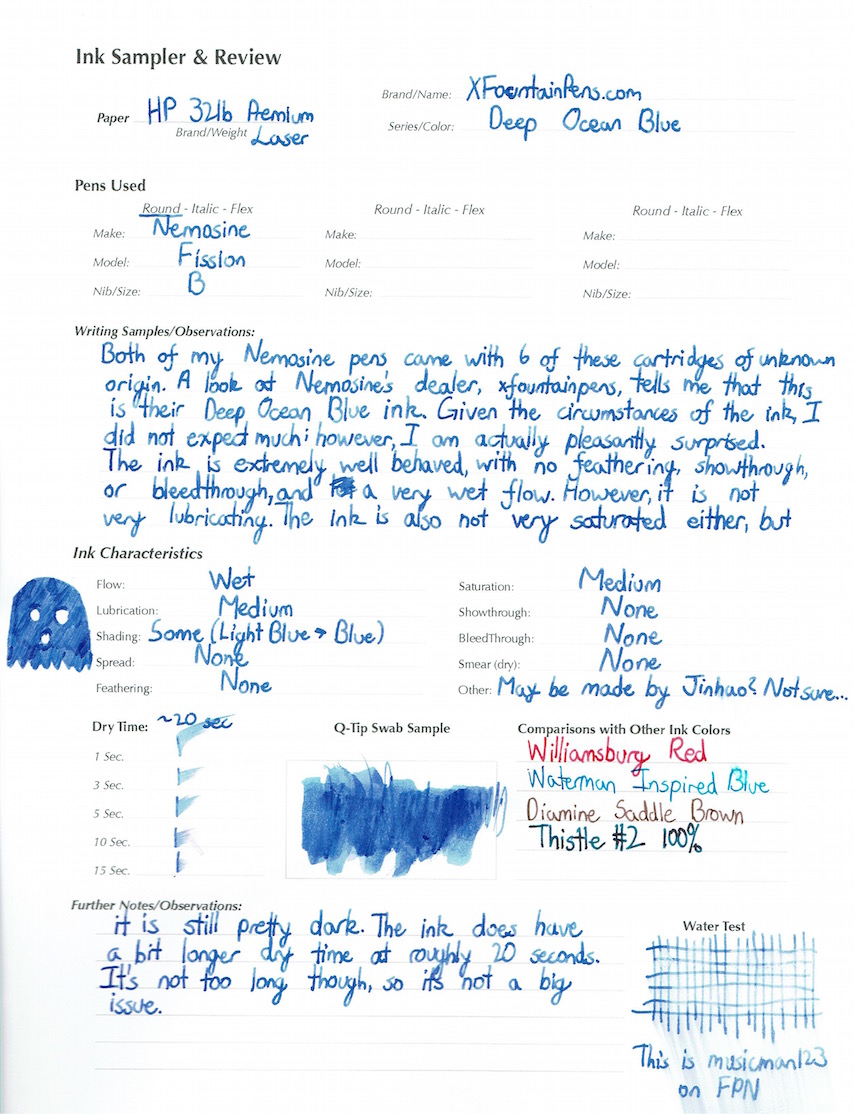 Ink Sampler & Review
Paper HP 32lb Premium
Brand/Weight Laser
Brand/Name: XFountainPens.com
Series/Color: Deep Ocean Blue
Pens Used
Round - Italic - Flex
Make: Nemosine
Model: Fission
Nib/Size: B
Round - Italic - Flex
Make:
Model:
Nib/Size:
Round - Italic - Flex
Make:
Model:
Nib/Size:
Writing Samples/Observations:
Both of my Nemosine pens came with 6 of these cartridges of unknown
origin. A look at Nemosine's dealer, xfountainpens, tells me that this
is their Deep Ocean Blue ink. Given the circumstances of the ink, I
did not expect much; however, I am actually pleasantly surprised.
The ink is extremely well behaved, with no feathering, showthrough,
or bleedthrough, and a very wet flow. However, it is not
very lubricating. The ink is also not very saturated either, but
Ink Characteristics
Flow: Wet
Lubrication: Medium
Shading: Some (Light Blue → Blue)
Spread: None
Feathering: None
Saturation: Medium
Showthrough: None
BleedThrough: None
Smear (dry): None
Other: May be made by Jinhao? Not sure...
Dry Time: ~20 sec
1 Sec.
3 Sec.
5 Sec.
10 Sec.
15 Sec.
Q-Tip Swab Sample
Comparisons with Other Ink Colors
Williamsburg Red
Waterman Inspired Blue
Diamine Saddle Brown
Thistle #2 100%
Further Notes/Observations:
it is still pretty dark. The ink does have
a bit longer dry time at roughly 20 seconds.
It's not too long though, so it's not a big
issue.
Water Test
This is musicman123
on FPN